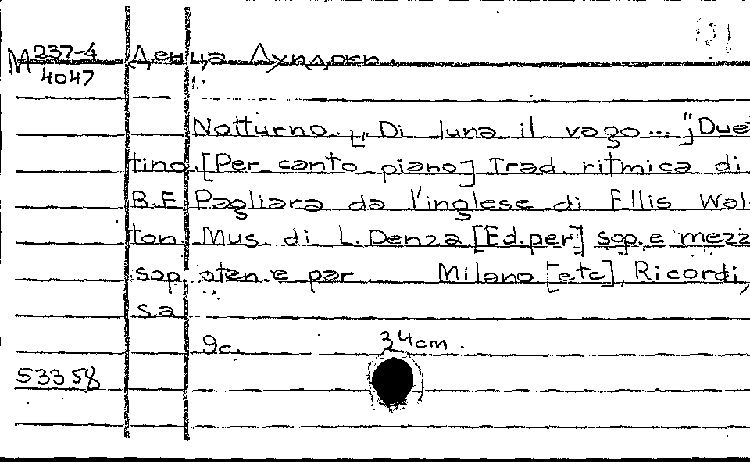 М 237-4 Денца Луиджи.
4047
Notturno „Di luna il vago..." Duet
tino. [Per canto piano] Trad. ritmica di
B.E. Pagliara da l'inglese di Ellis Wal-
ton. Mus. di L. Denza [Ed. per] sop. e mezz
sop. oten. e par Milano [etc], Ricordi,
s.a.
9c. 34cm.
53358